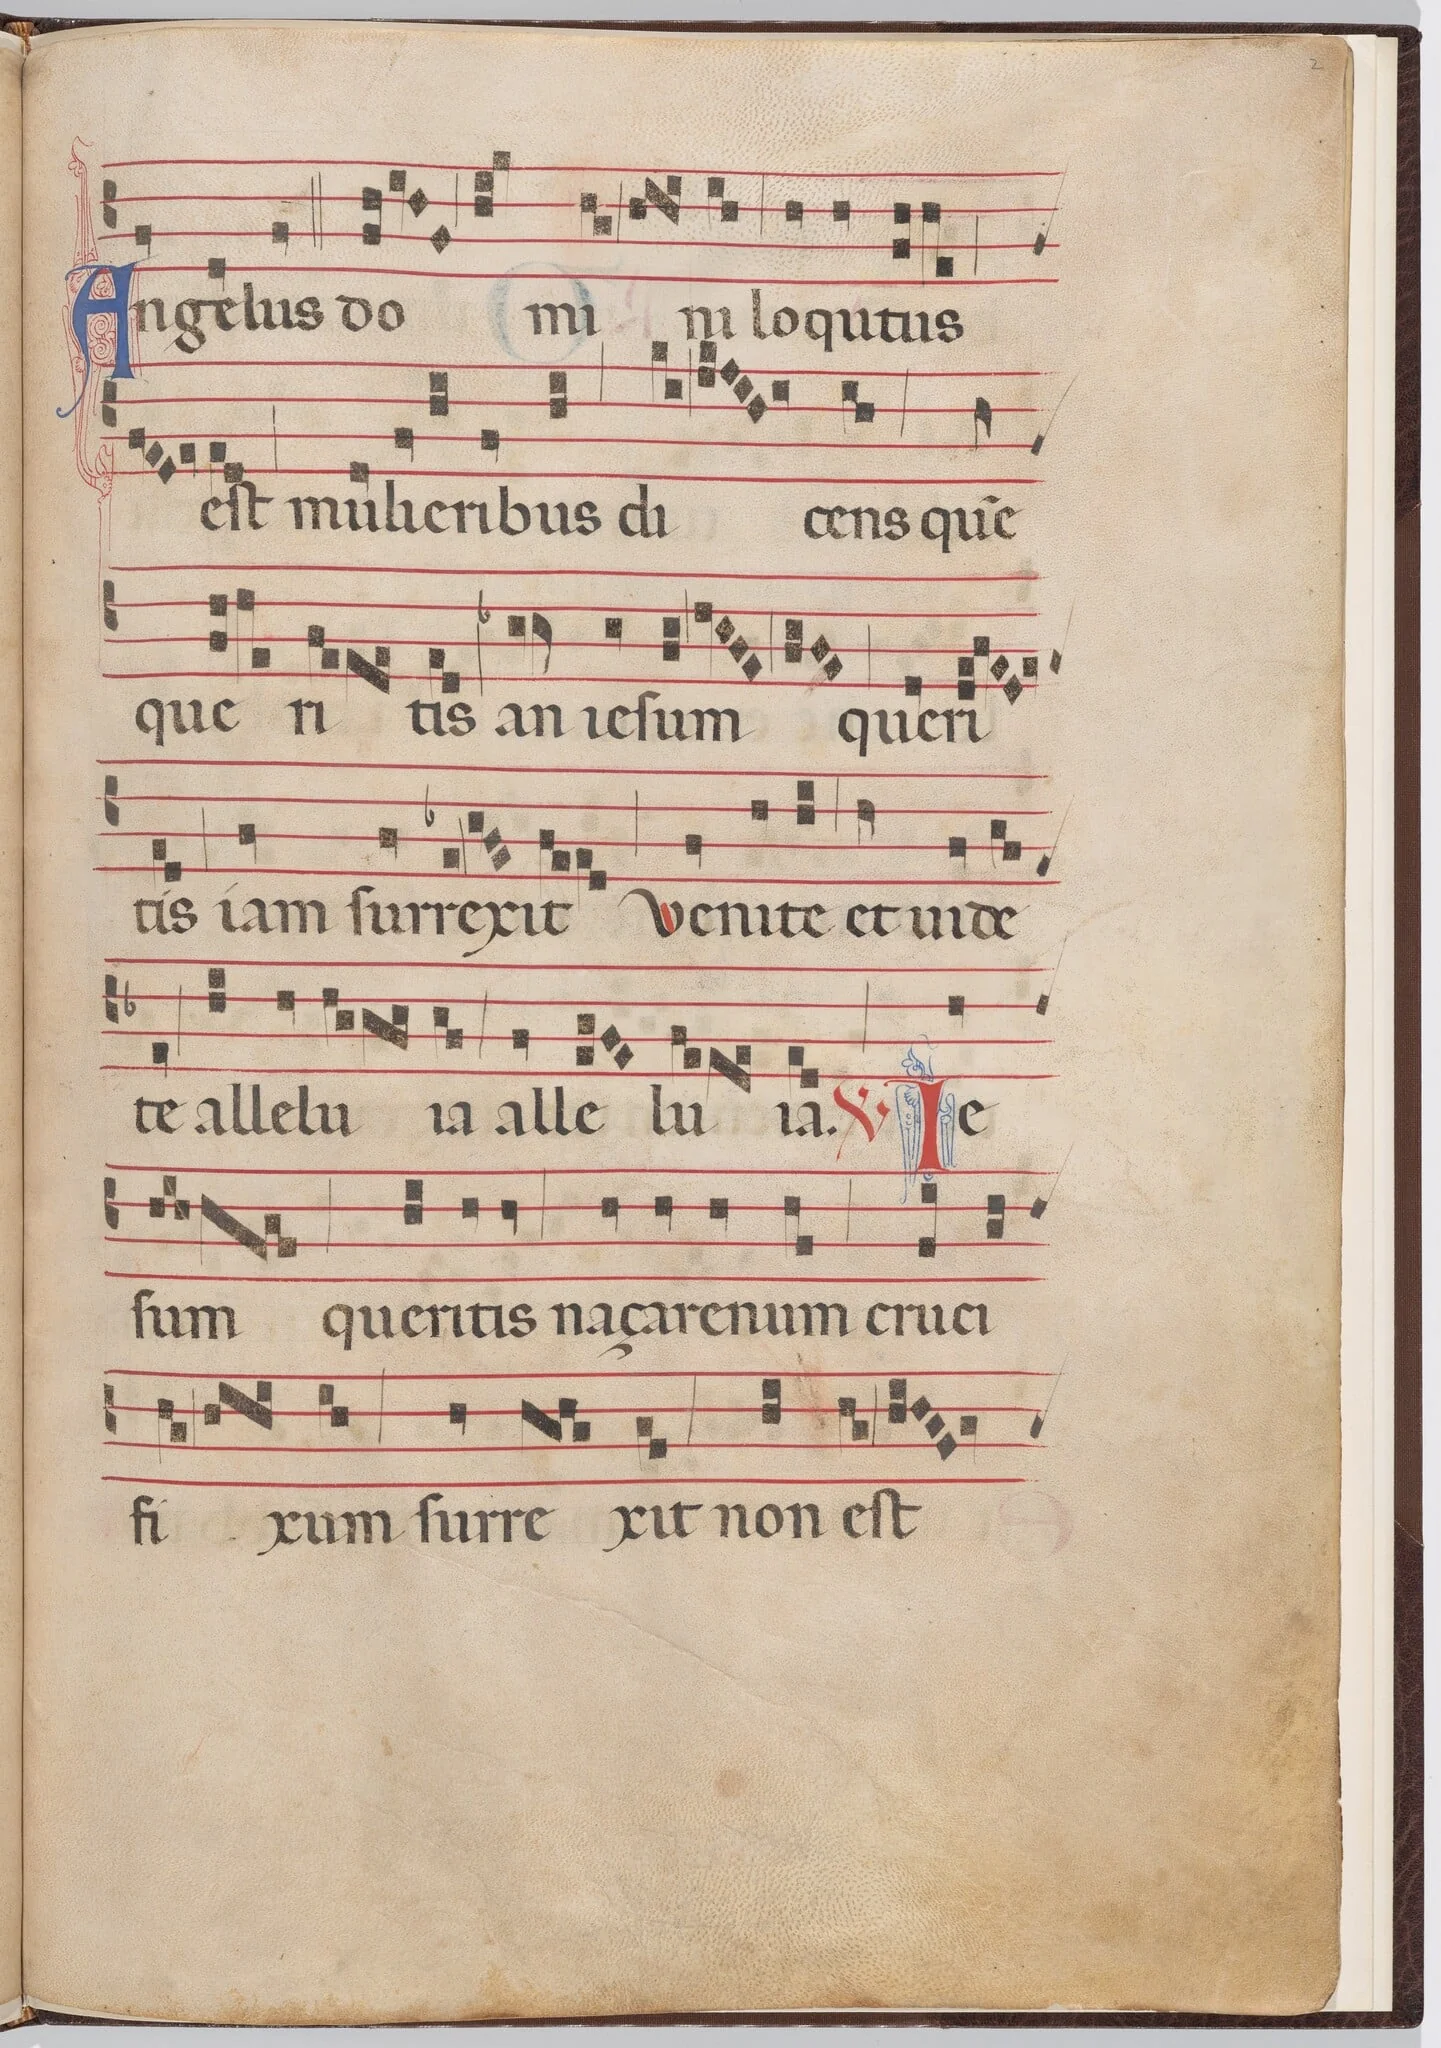 2
Angelus do mi ni loqutus
est mulieribus di cens quē
que ri tis an iesum queri
tis iam surrexit venite et uide
te allelu ia alle lu ia. V Ie
sum queritis naçarenum cruci
fi xum surre xit non est